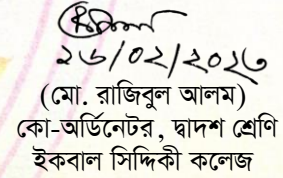 ২৬/০২/২০২৩
(মো. রাজিবুল আলম)
কো-অর্ডিনেটর, দ্বাদশ শ্রেণি
ইকবাল সিদ্দিকী কলেজ